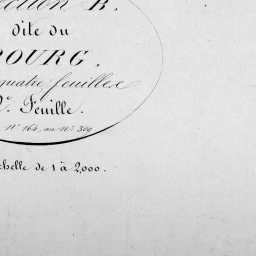 ection B.
dite du
BOURG.
quatre feuilles
2e. Feuille.
No. 164, au No. 309
chelle de 1 à 2,000.